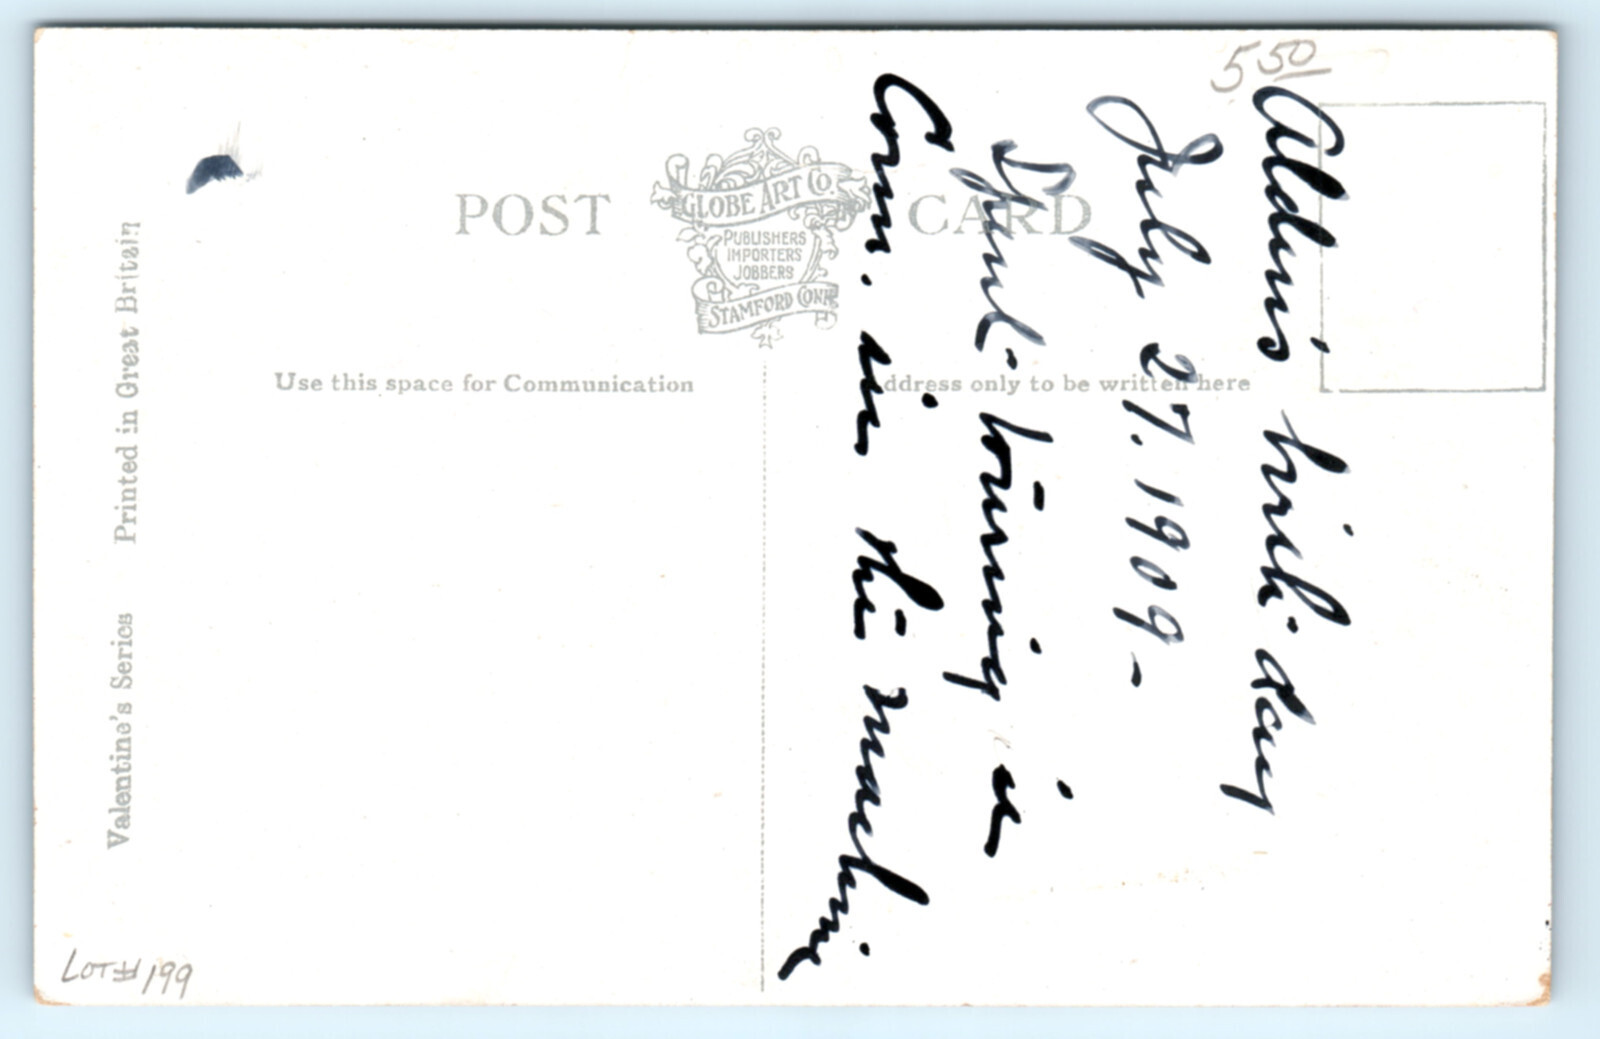 5 50
POST CARD
GLOBE ART CO.
PUBLISHERS
IMPORTERS
JOBBERS
STAMFORD CONN
Use this space for Communication
ddress only to be written here
Printed in Great Britain
Valentine's Series
Alden's birth-day
July 27. 1909-
Spent touring in
Conn. in the machine
LOT# 199